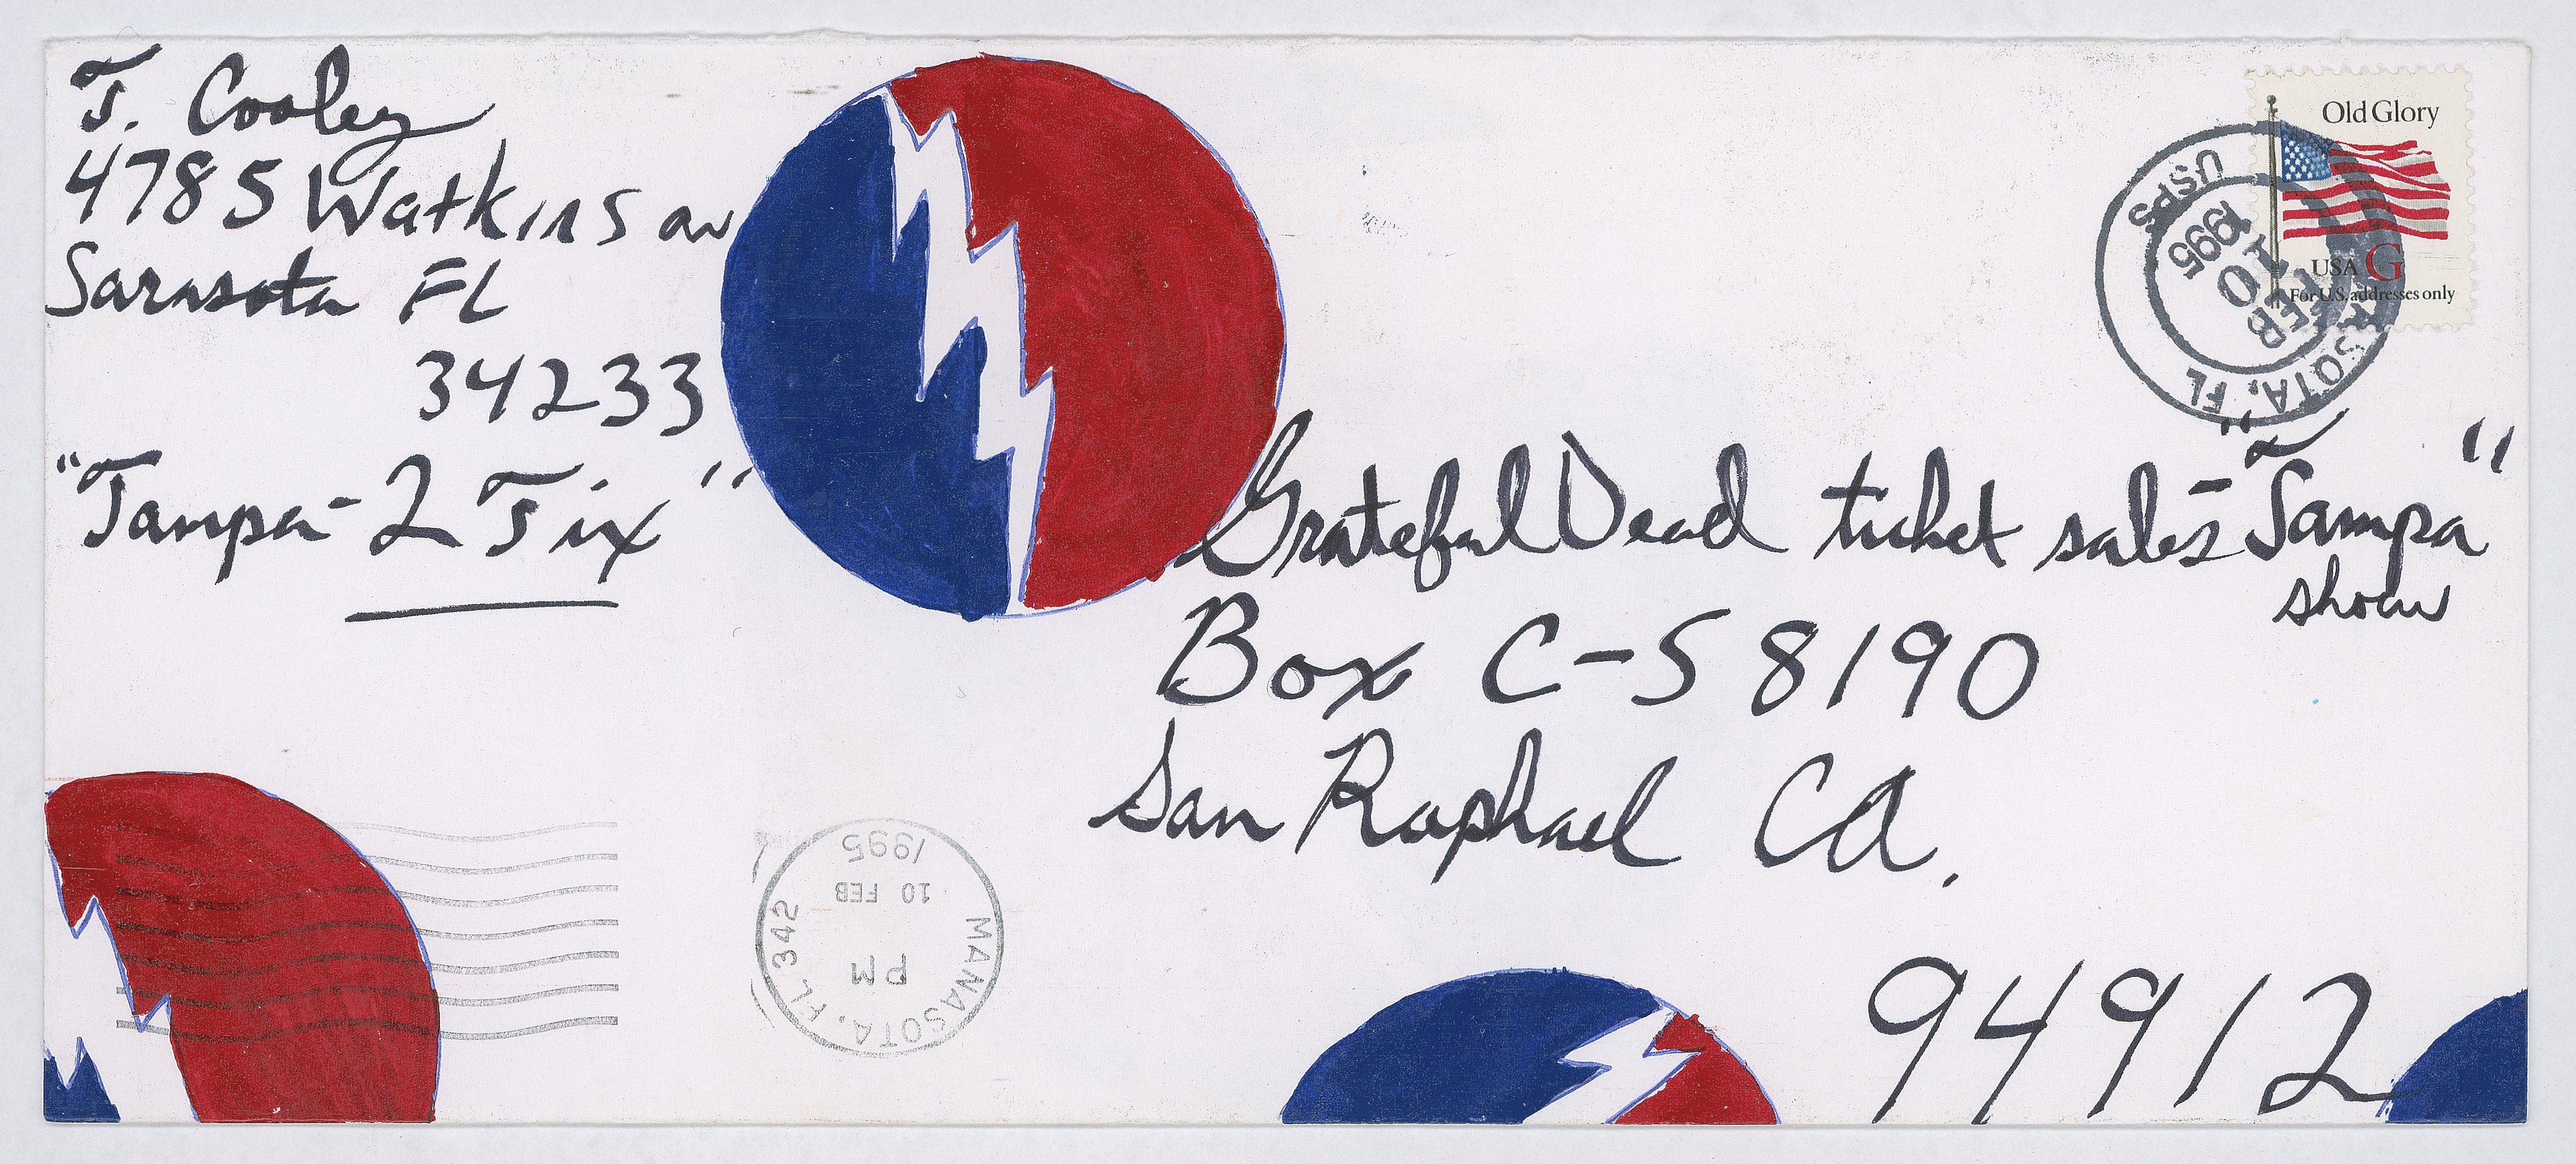 T. Cooley
4785 Watkins av
Sarasota FL
34233
"Tampa - 2 Tix"
Old Glory
USA G
For U.S. addresses only
SARASOTA, FL
FEB 10 1995
USPS
Grateful Dead ticket sales - "Tampa"
show
Box C-S 8190
San Raphael CA.
94912
MANASOTA, FL 342
PM
10 FEB
1995